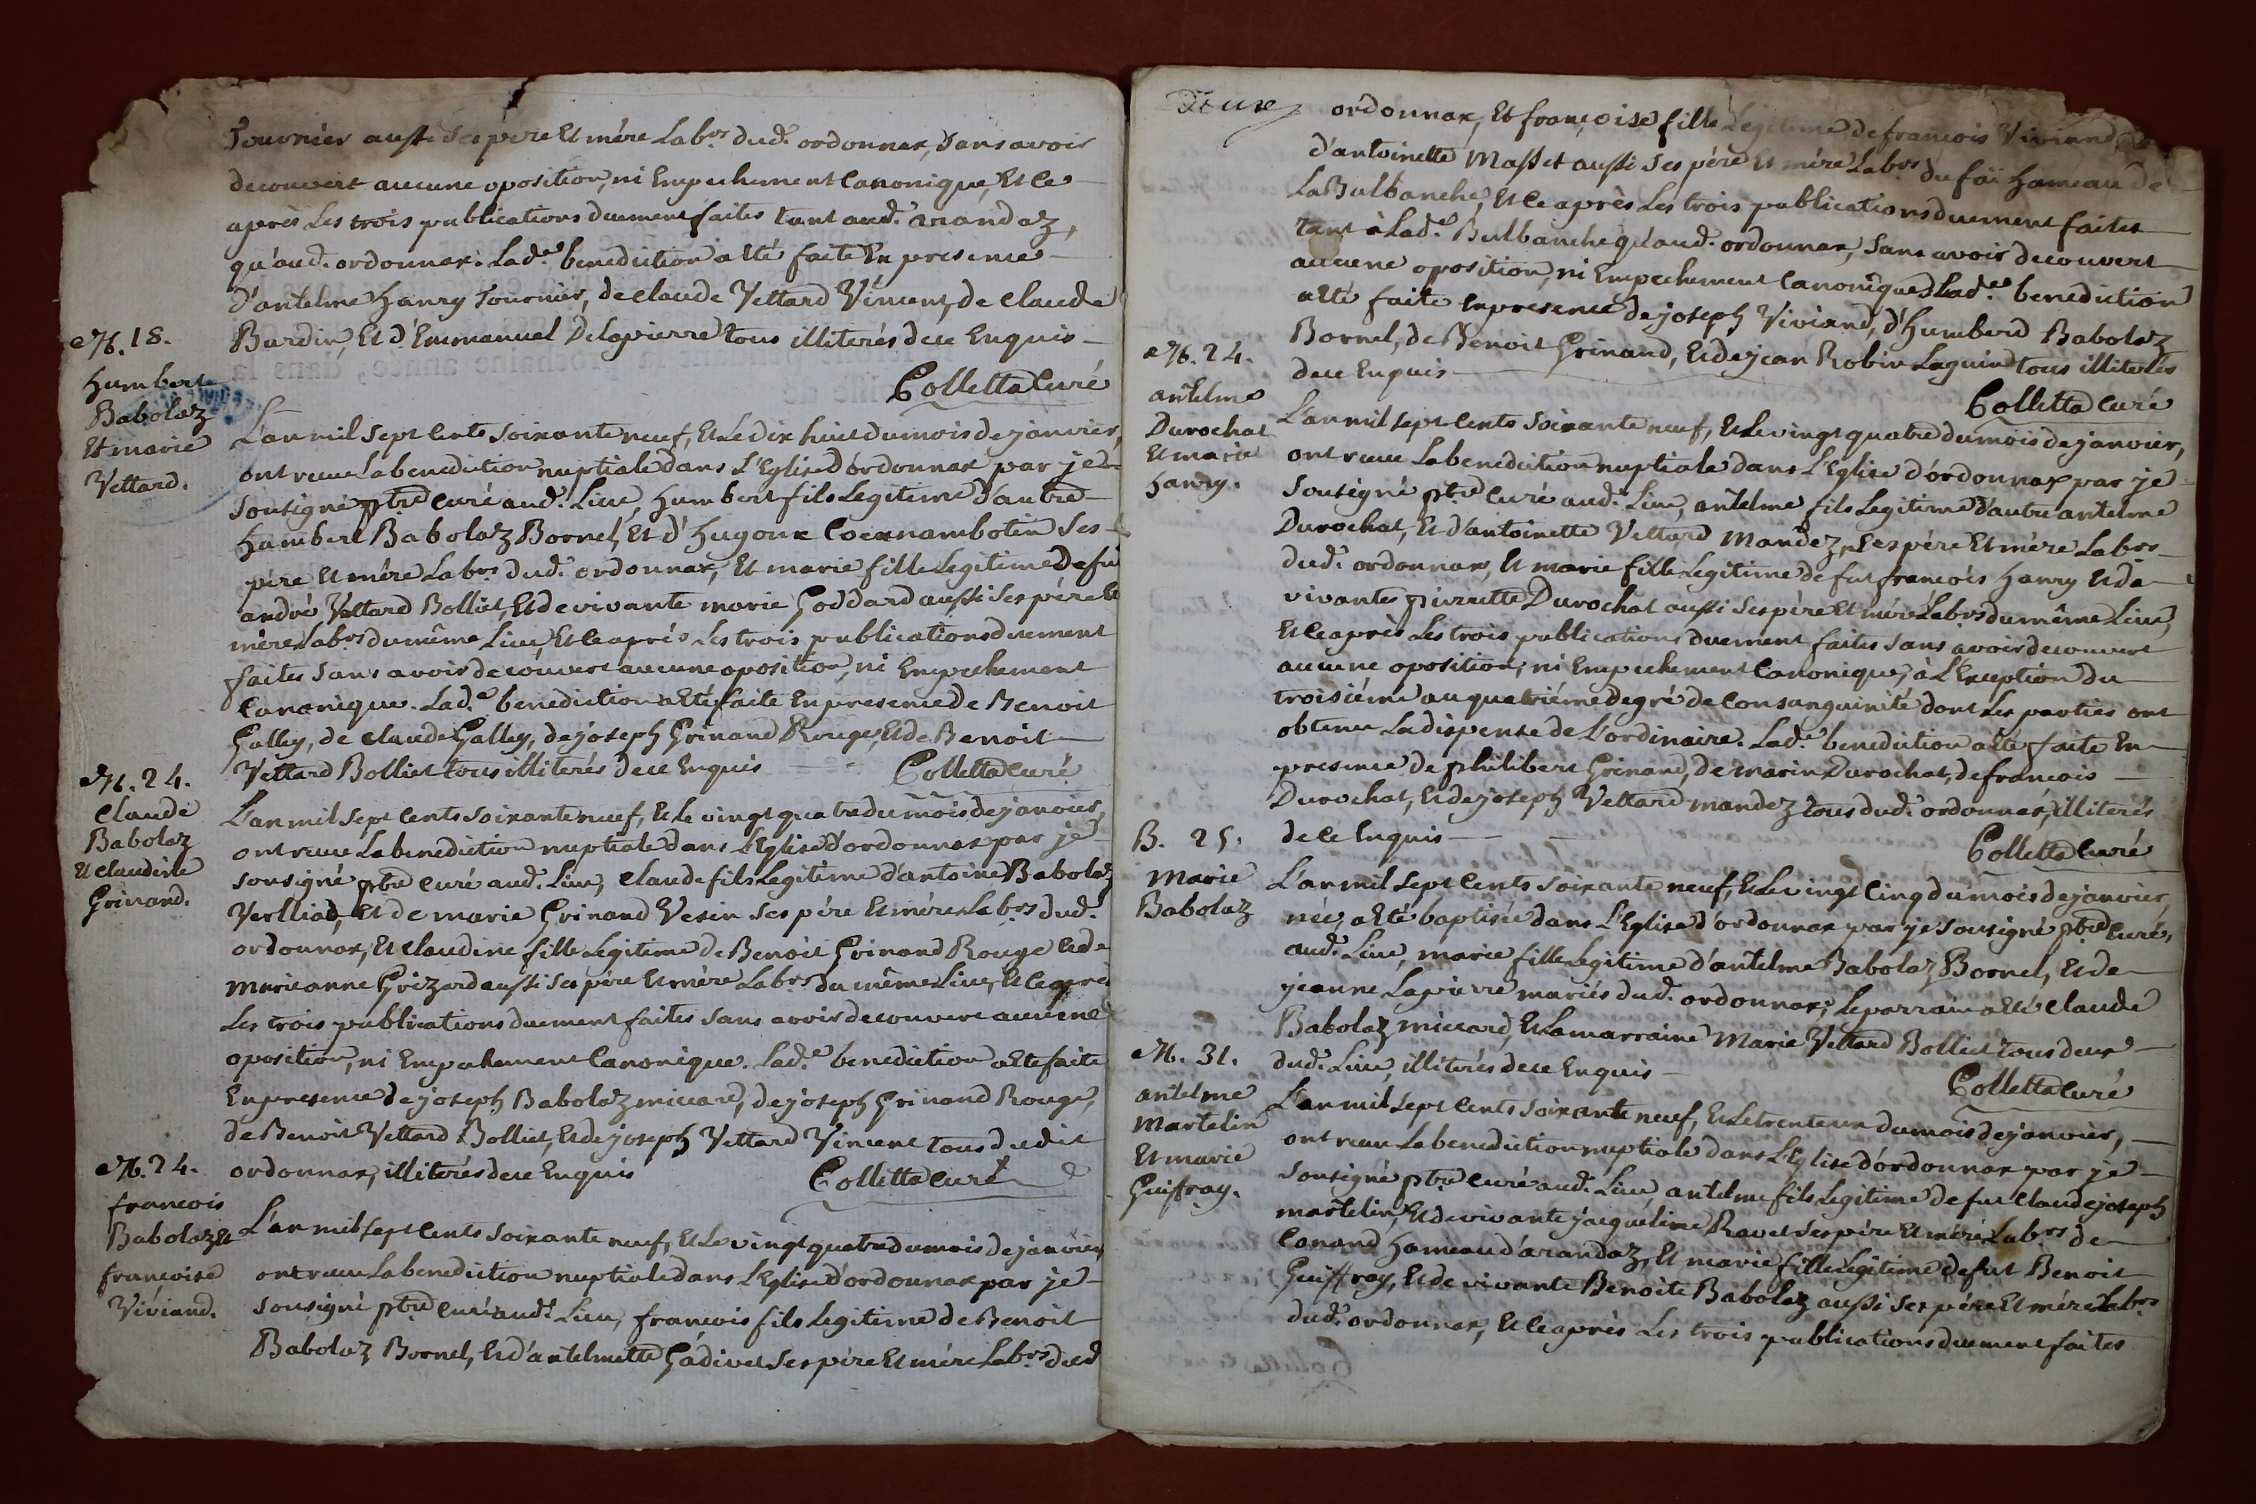 Tournier aussi ses père et mère Lab.rs dud. ordonnax, sans avoir
decouvert aucune oposition, ni Empechement Canonique, Et ce
après Les trois publications duement faites tant aud. arandaz,
qu'aud. ordonnax. Lad.e benediction a Eté faite En presence
D'antelme hanry Tournier, de claude Vettard Vincent, de claude
Bardin, Et d'Emmanuel Delapierre tous illiterés de ce Enquis
Colletta Curé
M. 18.
humbert
Babolaz
Et marie
Vettard.
L'an mil sept Cents soixante neuf, Et Le dix huit du mois de janvier,
ont recue La benediction nuptiale dans L'Eglise d'ordonnax par je
sousigné p̄tre Curé aud. Lieu, humbert fils Legitime d'autre
humbert Babolaz Bornel, Et d'hugoux Coexnambotin ses
père Et mère Lab.rs dud. ordonnax, Et marie fille Legitime de fu
andré Vettard Bolliet, Et de vivante marie Goddard aussi ses père Et
mère Lab.rs du même Lieu, Et ce après Les trois publications duement
faites sans avoir decouvert aucune oposition, ni Empechement
Canonique. Lad.e benediction a Eté faite En presence de Benoit
Galley, de claude Galley, de joseph Grinand Rouge, Et de Benoit
Vettard Bolliet tous illiterés de ce Enquis
Colletta Curé
M. 24.
Claude
Babolaz
Et claudine
Grinand.
L'an mil sept Cents soixante neuf, Et Le vingt quatre du mois de janvier,
ont recue La benediction nuptiale dans L'Eglise d'ordonnax par je
sousigné p̄tre Curé aud. Lieu, claude fils Legitime d'antoine Babolaz
Verlliad, Et de marie Grinand Vesin ses père Et mère Lab.rs dud.
ordonnax, Et claudine fille Legitime de Benoit Grinand Rouge Et de
marianne Grizard aussi ses père Et mère Lab.rs du même Lieu, Et ce apres
Les trois publications duement faites sans avoir decouvert aucune
oposition, ni Empechement Canonique. Lad.e benediction a Eté faite
En presence de joseph Babolaz miccard, de joseph Grinand Rouge,
de Benoit Vettard Bolliet, Et de joseph Vettard Vincent tous dudit
ordonnax, illiterés de ce Enquis
Colletta Curé
M. 24.
françois
Babolaz Et
françoise
Viviand.
L'an mil sept Cents soixante neuf, Et Le vingt quatre du mois de janvier,
ont recue La benediction nuptiale dans L'Eglise d'ordonnax par je
sousigné p̄tre Curé aud. Lieu, françois fils Legitime de Benoit
Babolaz Bornel, Et d'antelmette Gadivet ses père Et mère Lab.rs dud
ordonnax, Et françoise fille Legitime de françois Viviand
d'antoinette Masset aussi ses père Et mère Lab.rs du fai hameau de
La Bulbanche, Et ce après Les trois publications duement faites
tant à Lad.e Bulbanche qu'aud. ordonnax, sans avoir decouvert
aucune oposition, ni Empechement Canonique. Lad.e benediction
a Eté faite En presence de joseph Viviand, d'humberd Babolaz
Bornel, de Benoit Grinand, Et de jean Robin Leguin tous illiterés
de ce Enquis
Colletta Curé
M. 24.
antelme
Durochat
Et marie
hanry.
L'an mil sept Cents soixante neuf, Et Le vingt quatre du mois de janvier,
ont recue La benediction nuptiale dans L'Eglise d'ordonnax par je
sousigné p̄tre Curé aud. Lieu, antelme fils Legitime d'autre antelme
Durochat, Et d'antoinette Vettard mandez, ses père Et mère Lab.rs
dud. ordonnax, Et marie fille Legitime de fut françois hanry Et de
vivante pierrette Durochat aussi ses père Et mère Lab.rs du même Lieu,
Et ce après Les trois publications duement faites sans avoir decouvert
aucune oposition, ni Empechement Canonique, à L'Exception du
troisiéme au quatriéme degré de Consanguinité dont Les parties ont
obtenu La dispense de L'ordinaire. Lad.e benediction a Eté faite En
presence de philibert Grinand, de marin Durochat, de françois
Durochat, Et de joseph Vettard mandez tous dud. ordonnax, illiterés
de ce Enquis
Colletta Curé
B. 25.
Marie
Babolaz
L'an mil sept Cents soixante neuf, Et Le vingt Cinq du mois de janvier,
née, a Eté baptisée dans L'Eglise d'ordonnax par je sousigné p̄tre Curé,
aud. Lieu, marie fille Legitime d'antelme Babolaz Bornel, Et de
jeanne Lapierre mariés dud. ordonnax; Le parrain a Eté Claude
Babolaz miccard, Et La marraine Marie Vettard Bolliet tous deux
dud. Lieu, illiterés de ce Enquis
Colletta Curé
M. 31.
antelme
Martelin
Et marie
Guiffray.
L'an mil sept Cents soixante neuf, Et Le trente un du mois de janvier,
ont recue La benediction nuptiale dans L'Eglise d'ordonnax par je
sousigné p̄tre Curé aud. Lieu, antelme fils Legitime de fut claude joseph
martelin, Et de vivante jacqueline Ravet ses père Et mère Lab.rs de
Conand hameau d'arandaz, Et marie fille Legitime de fut Benoit
Guiffray, Et de vivante Benoite Babolaz aussi ses père Et mère Lab.rs
dud. ordonnax, Et ce après Les trois publications duement faites